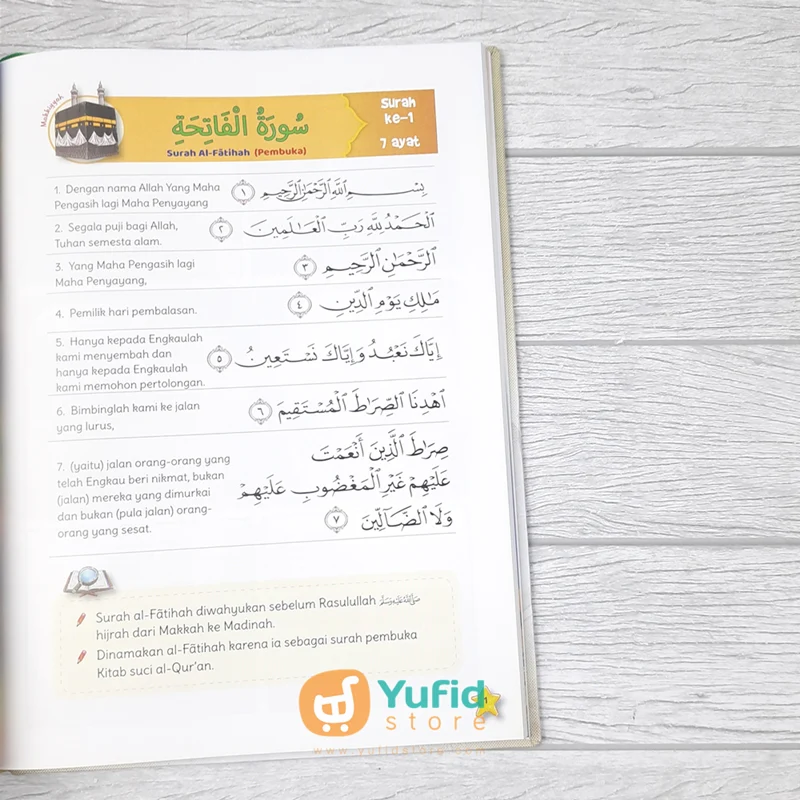 Makkiyyah
سُورَةُ الْفَاتِحَةِ
Surah Al-Fātihah (Pembuka)
Surah
ke-1
7 ayat
1. Dengan nama Allah Yang Maha
Pengasih lagi Maha Penyayang
بِسْمِ ٱللَّهِ ٱلرَّحْمَٰنِ ٱلرَّحِيمِ ١
2. Segala puji bagi Allah,
Tuhan semesta alam.
ٱلْحَمْدُ لِلَّهِ رَبِّ ٱلْعَٰلَمِينَ ٢
3. Yang Maha Pengasih lagi
Maha Penyayang,
ٱلرَّحْمَٰنِ ٱلرَّحِيمِ ٣
4. Pemilik hari pembalasan.
مَٰلِكِ يَوْمِ ٱلدِّينِ ٤
5. Hanya kepada Engkaulah
kami menyembah dan
hanya kepada Engkaulah
kami memohon pertolongan.
إِيَّاكَ نَعْبُدُ وَإِيَّاكَ نَسْتَعِينُ ٥
6. Bimbinglah kami ke jalan
yang lurus,
ٱهْدِنَا ٱلصِّرَٰطَ ٱلْمُسْتَقِيمَ ٦
7. (yaitu) jalan orang-orang yang
telah Engkau beri nikmat, bukan
(jalan) mereka yang dimurkai
dan bukan (pula jalan) orang-
orang yang sesat.
صِرَٰطَ ٱلَّذِينَ أَنْعَمْتَ
عَلَيْهِمْ غَيْرِ ٱلْمَغْضُوبِ عَلَيْهِمْ
وَلَا ٱلضَّآلِّينَ ٧
Surah al-Fātihah diwahyukan sebelum Rasulullah ﷺ
hijrah dari Makkah ke Madinah.
Dinamakan al-Fātihah karena ia sebagai surah pembuka
Kitab suci al-Qur'an.
1
Yufid
store
www.yufidstore.com